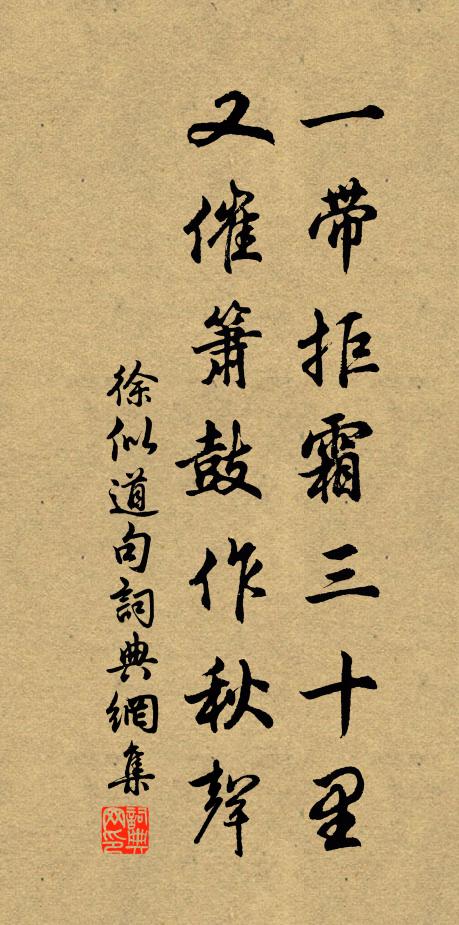 一帶拒霜三十里
又催簫鼓作秋聲
徐似道句詞典網集
詞典網印